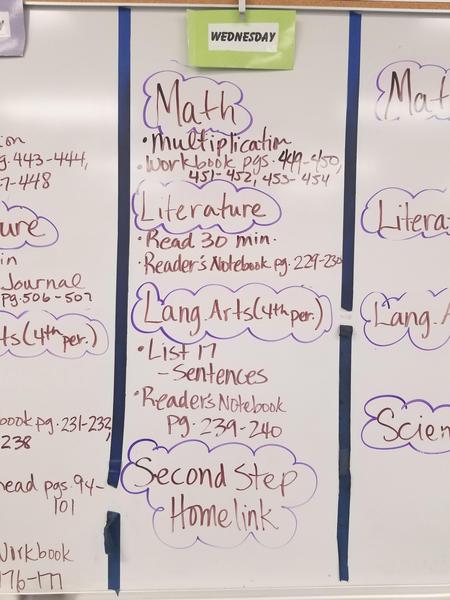 WEDNESDAY
Math
• Multiplication
• Workbook pgs. 449-450,
451-452, 453-454
Literature
• Read 30 min.
• Reader's Notebook pg. 229-230
Lang. Arts (4th per.)
• List 17
- Sentences
• Reader's Notebook
pg. 239-240
Second Step
Homelink
443-444,
7-448
in
Journal
pg. 506-507
(4th per.)
pg. 231-232,
238
pgs. 94-
101
Workbook
176-177
Lang.